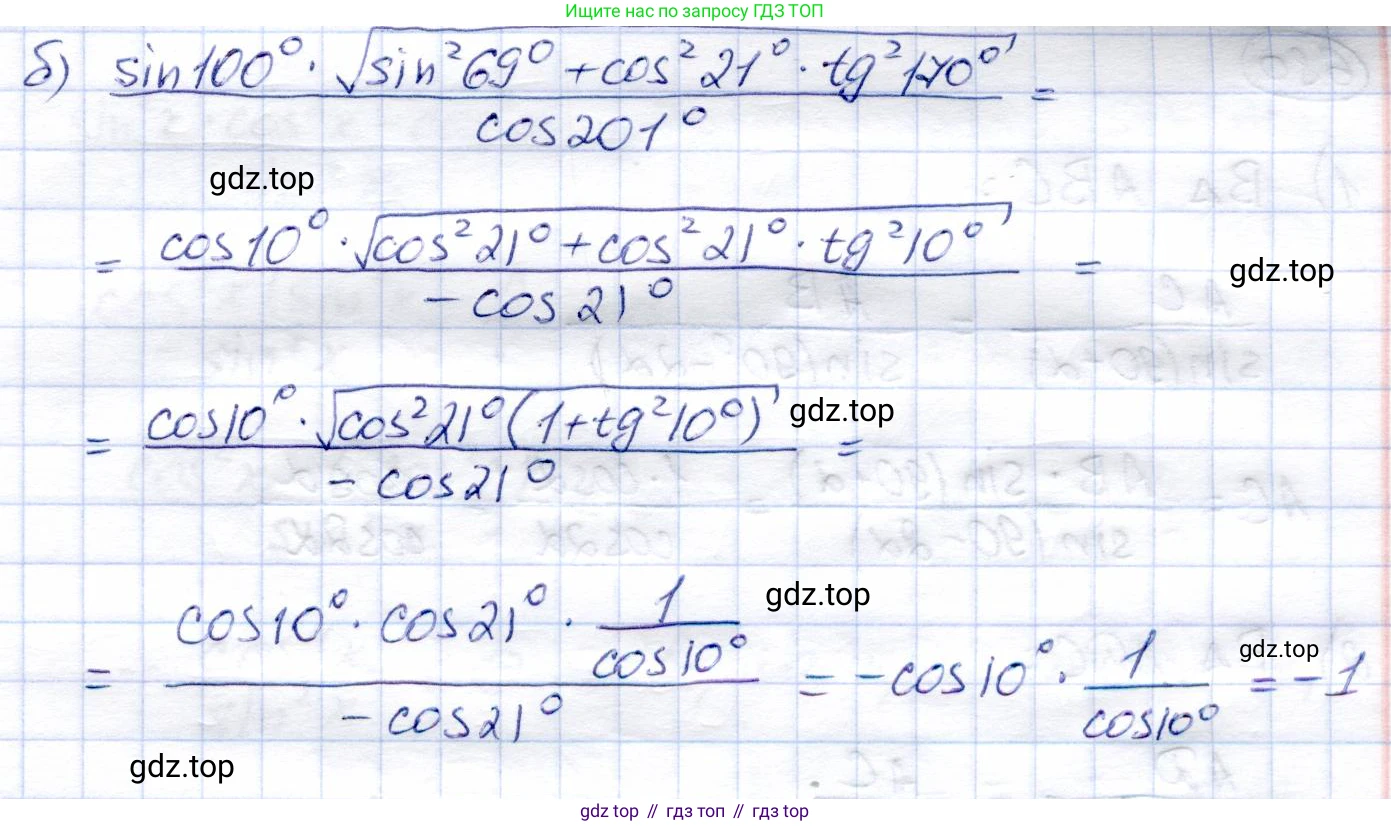 Ищите нас по запросу ГДЗ ТОП
б) sin100° · √(sin²69° + cos²21° · tg²170°) / cos201° =
gdz.top
= cos10° · √(cos²21° + cos²21° · tg²10°) / -cos21° =
gdz.top
= cos10° · √(cos²21°(1+tg²10°)) / -cos21° =
gdz.top
= cos10° · cos21° · 1/cos10° / -cos21° = -cos10° · 1/cos10° = -1
gdz.top
gdz.top
gdz.top
gdz top // гдз топ // гдз top